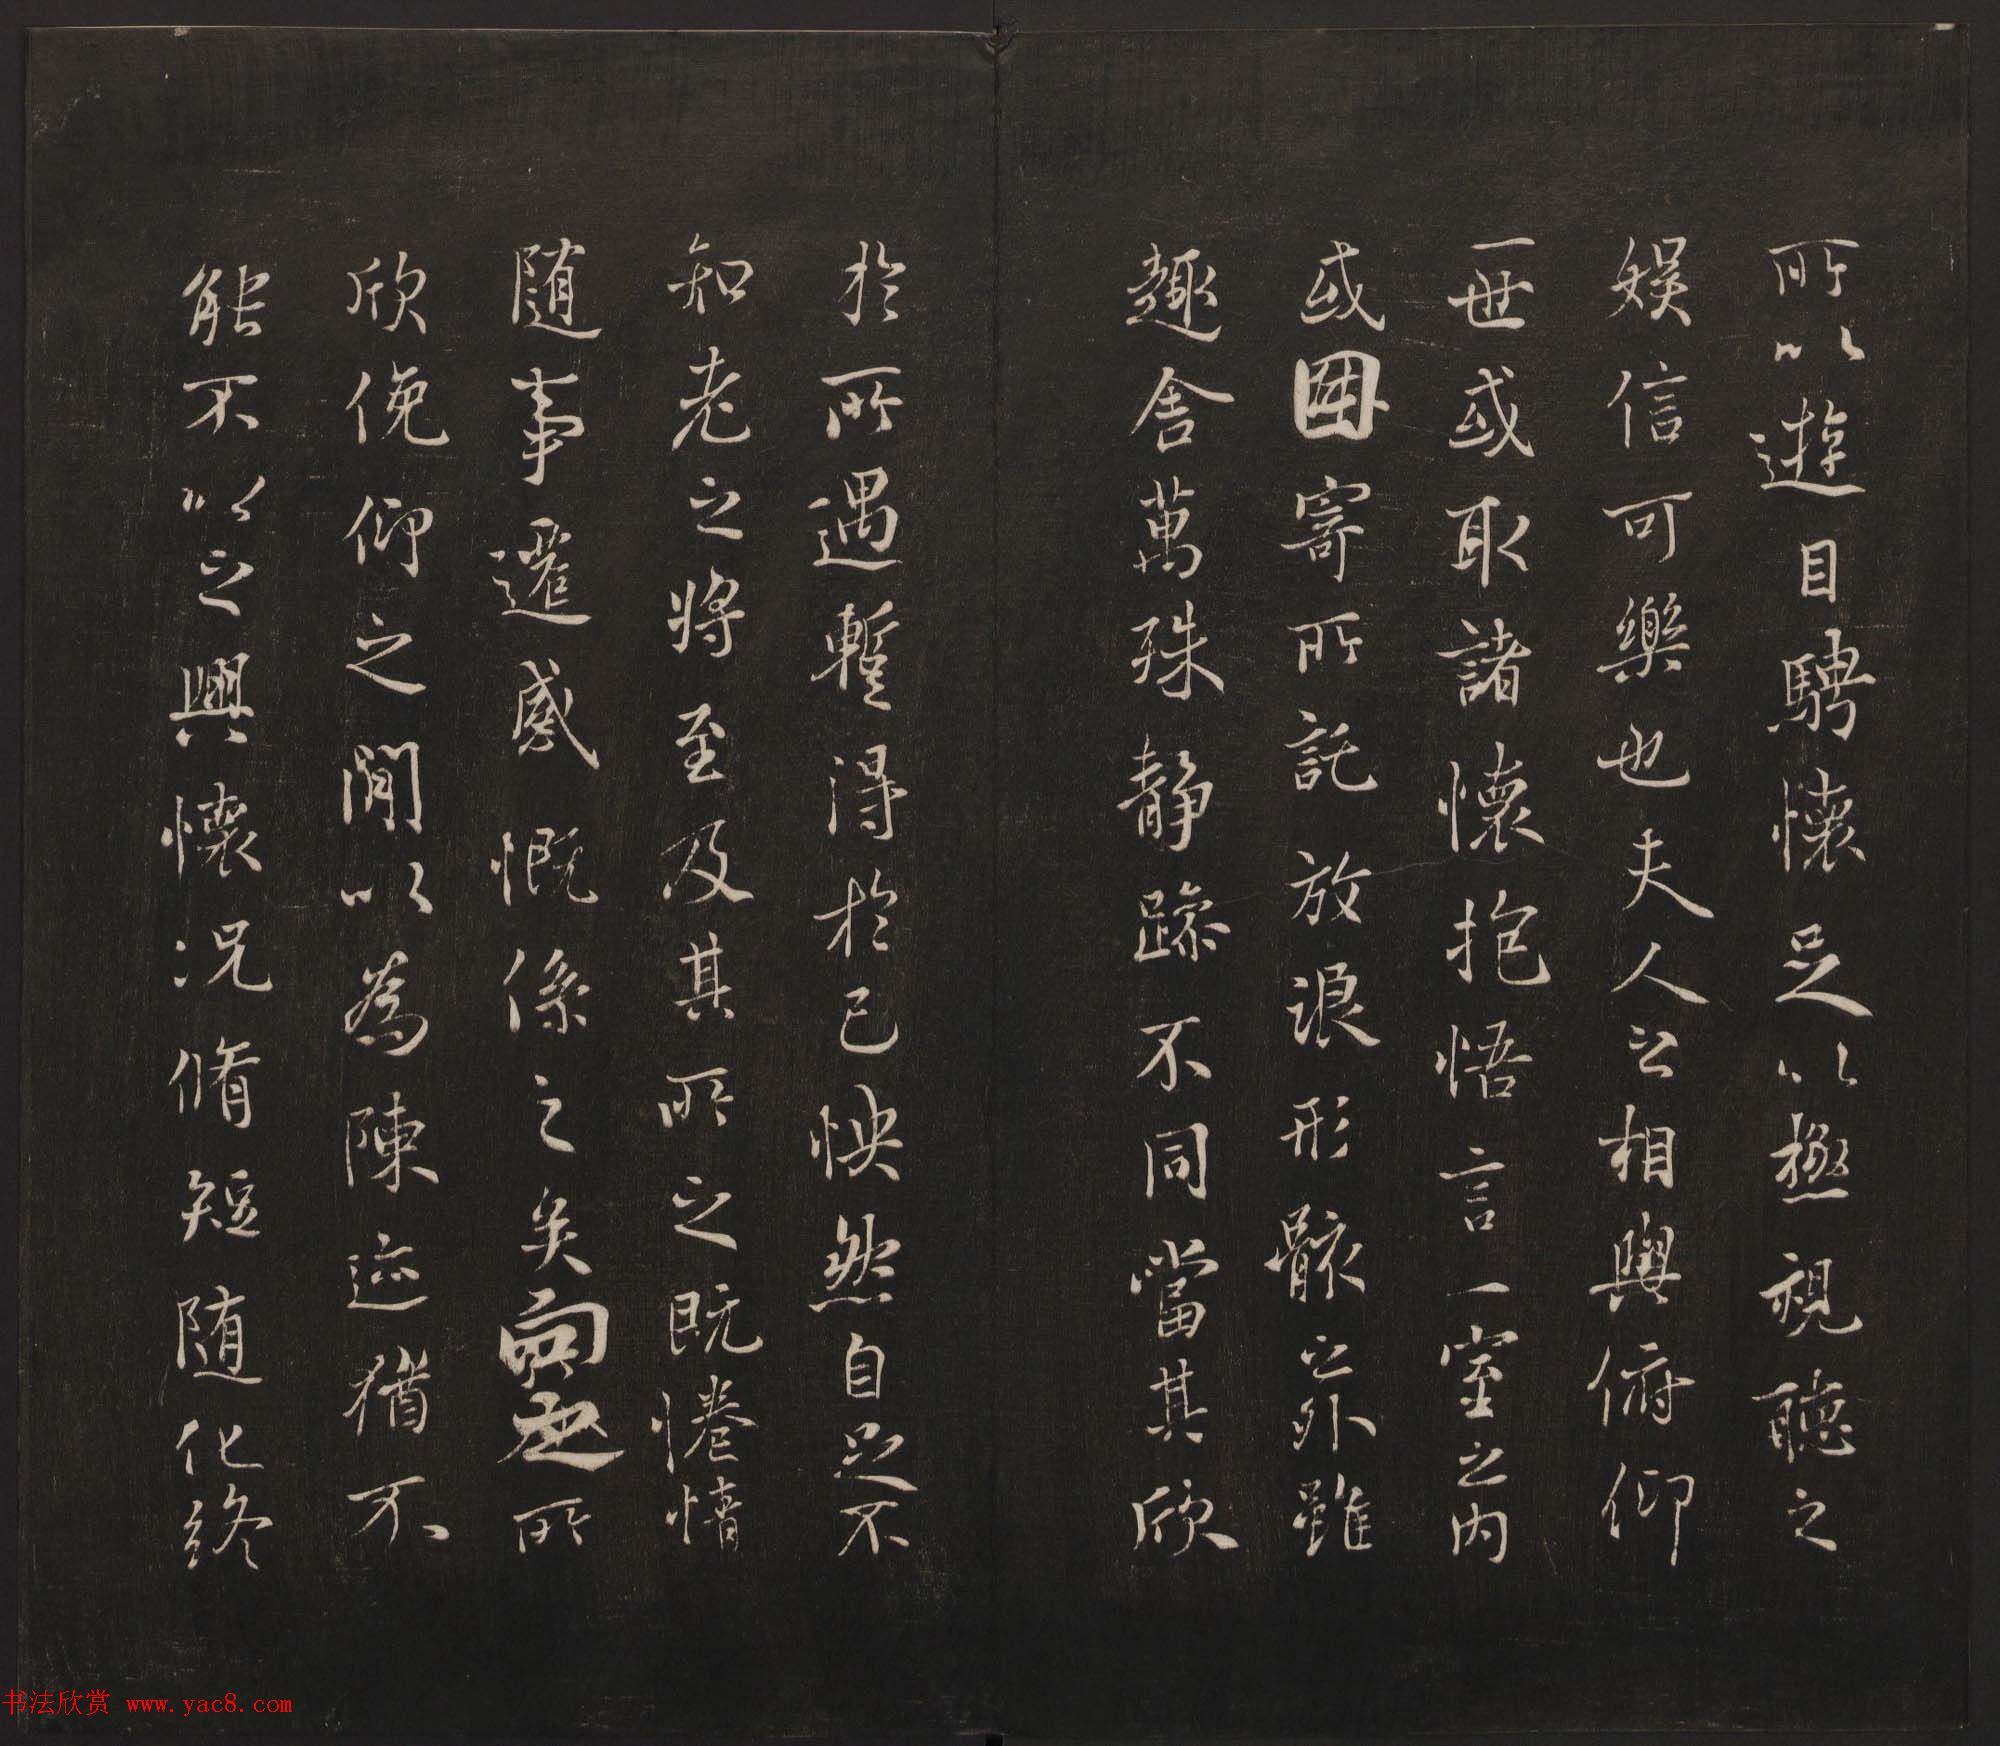 所以遊目騁懷足以極視聽之
娛信可樂也夫人之相與俯仰
一世或取諸懷抱悟言一室之內
或因寄所託放浪形骸之外雖
趣舍萬殊靜躁不同當其欣
於所遇暫得於己怏然自足不
知老之將至及其所之既惓情
隨事遷感慨係之矣向之所
欣俛仰之間以為陳迹猶不
能不以之興懷況脩短隨化終
书法欣赏 www.yac8.com